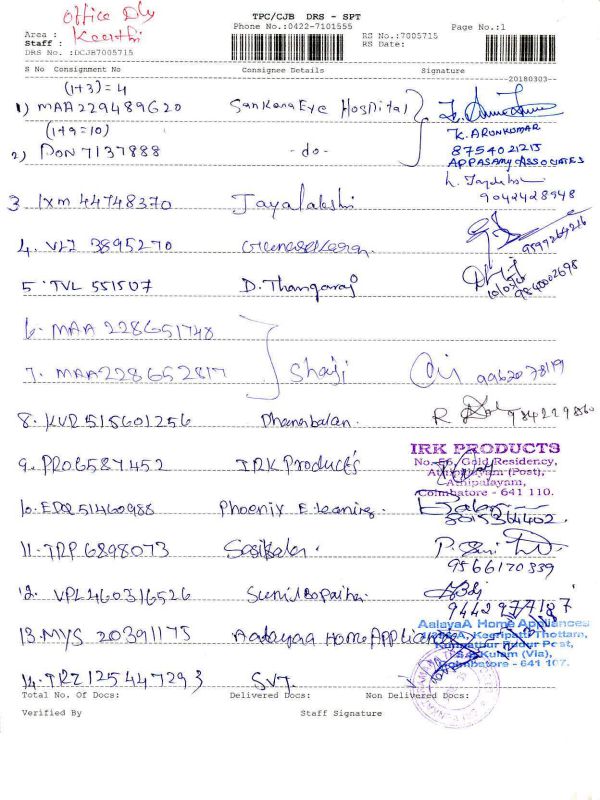 Office Dly
Keerthi
TPC/CJB DRS - SPT
Phone No.:0422-7101555
Page No.:1
Area :
Staff :
DRS No. :DCJB7005715
RS No.:7005715
RS Date:
S No Consignment No Consignee Details Signature
20180303
(1+3)=4
1) MAA229489620 Sankara Eye Hospital
K. ARUNKUMAR
(1+9=10)
2) PON 7137888 -do- 8754021215
APPASAMY ASSOCIATES
9042428948
3 IXM 44748370 Jayalakshi
4. VLI 3895270 Gunasekaran 9597264216
5. TVL 551507 D. Thangaraj 9840002698
6. MAA 228651748
7. MAA228652817 Shaji 9962078119
8. KVR515601256 Dhanabalan. R 984229860
IRK PRODUCTS
No. 56, Gold Residency,
Athipalayam (Post),
Athipalayam,
Coimbatore - 641 110.
9. PRO6587452 IRK Product's
10. EDQ51460988 Phoenix E-Learning.
11. TRP6898073 Sasikala.
9566170339
12. VPL460316526 Sunil Bopaiha
9442974187
AalayaA Home Appliances
13. MYS 20391175 Aalayaa Home Appliances
Coimbatore - 641 107.
14. TRZ125447293 SVT
Total No. Of Docs: Delivered Docs: Non Delivered Docs:
Verified By Staff Signature